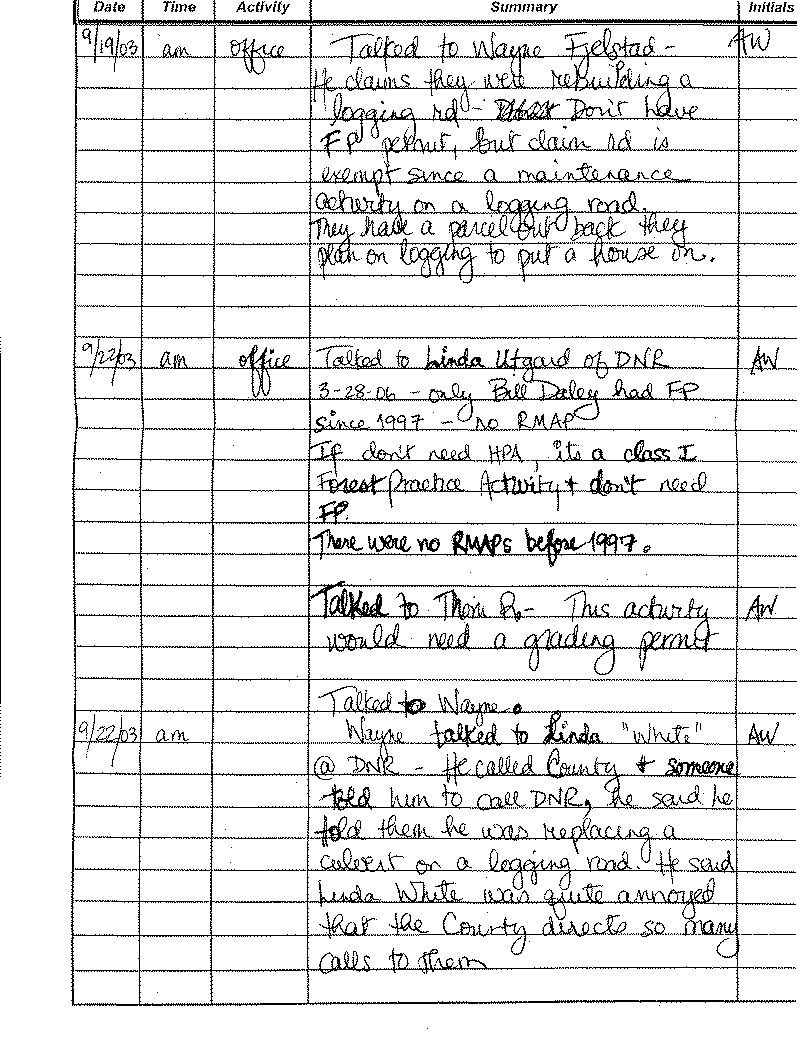 Date Time Activity Summary Initials
9/19/03 am office Talked to Wayne Fjelstad - AW
He claims they were rebuilding a
logging rd - Don't have
FP permit, but claim rd is
exempt since a maintenance
activity on a logging road.
They have a parcel out back they
plan on logging to put a house on.
9/22/03 am office Talked to Linda Utgard of DNR AW
3-28-06 - only Bill Daley had FP
since 1997 - no RMAP
If don't need HPA, its a class I
Forest Practice Activity + don't need
FP.
There were no RMAPs before 1997.
Talked to Thom R. - This activity AW
would need a grading permit
Talked to Wayne.
9/22/03 am Wayne talked to Linda "White" AW
@ DNR - He called County + someone
told him to call DNR, he said he
told them he was replacing a
culvert on a logging road. He said
Linda White was quite annoyed
that the County directs so many
calls to them